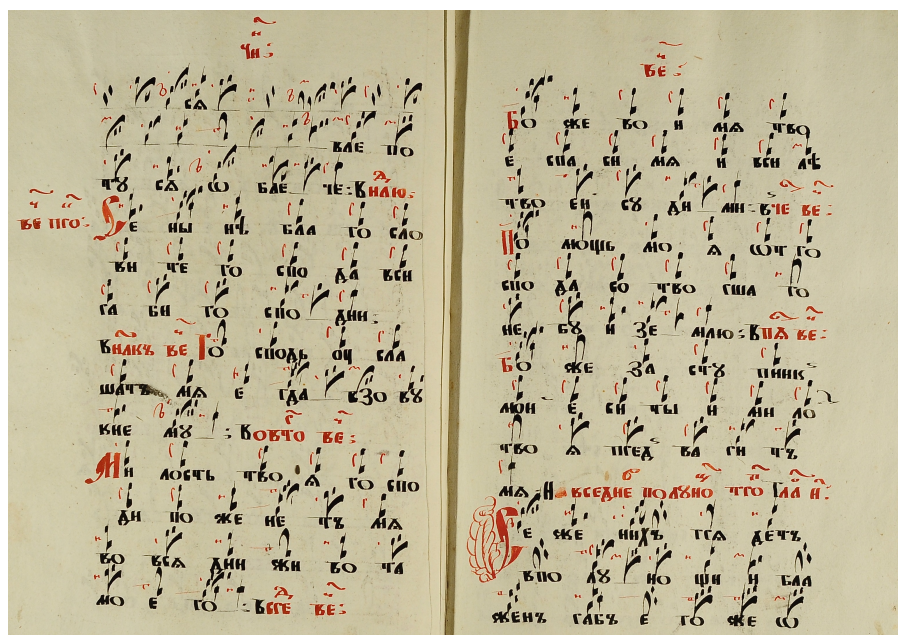 чн:
сѧ
вле по
чꙋ сѧ ѡ бле че:
ве пго: Се ны нѣ бла го сло
ви че го спо да вси
га би го спо дни:
Го сподь оу сла
шатъ мѧ е гда взо вꙋ
мꙋ : В овто ве:
Ми лость тво ѧ го спо
ди по же не тъ мѧ
во всѧ дни жи во та
мо е го : ве:
ве:
Бо же во и мѧ тво
е спа си мѧ и вси лѣ
тво ей сꙋ ди ми: в че ве:
По мощь мо ѧ ѿ го
спо да со тво гша го
не бꙋ и зе млю: В пѧ ве:
Бо же за стꙋ пник
мой е си ты и ми ло
тво ѧ пгед ва ги тъ
мѧ Н вседне полꙋно тго гла и:
Се же нихъ ггѧ детъ
в по лꙋ но щи и бла
женъ габъ е го же ѡ